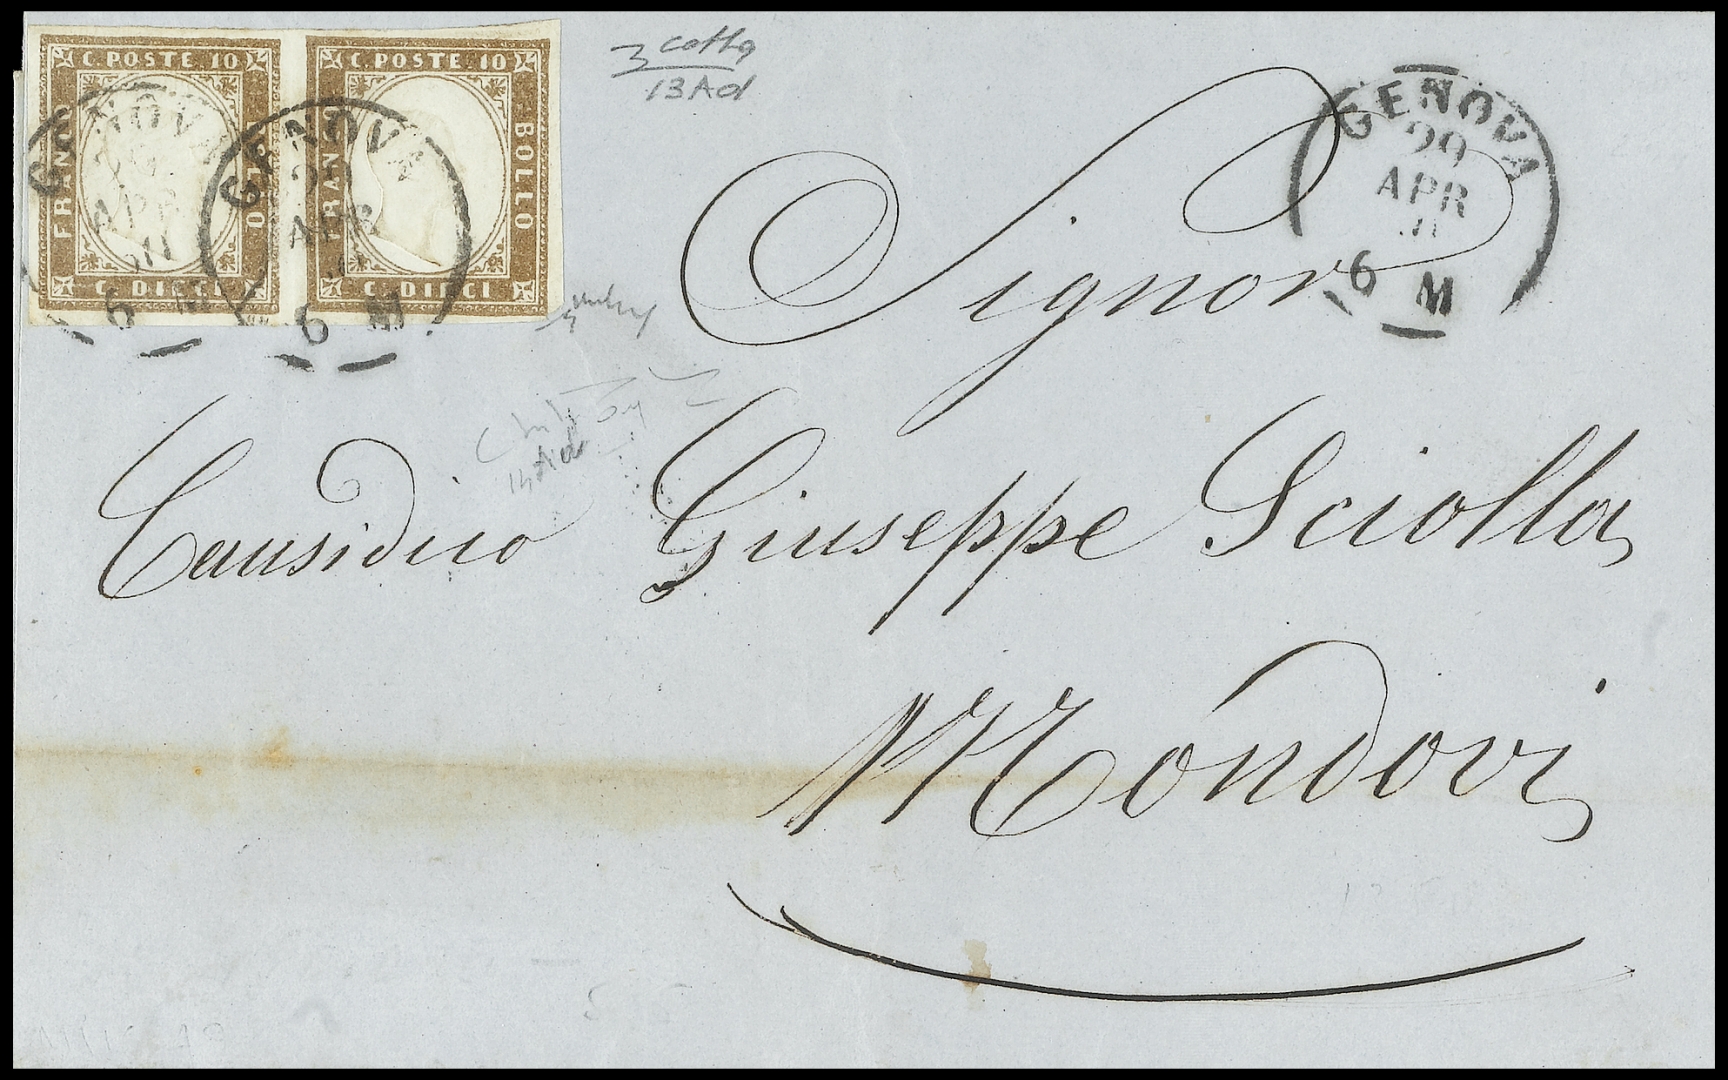 C. POSTE. 10
FRANCO
BOLLO
C. DIECI
C. POSTE. 10
FRANCO
BOLLO
C. DIECI
GENOVA
APR
6 M
GENOVA
29
APR
6 M
GENOVA
29
APR
6 M
13Ad
Signor
Causidico Giuseppe Sciolla
Mondovi